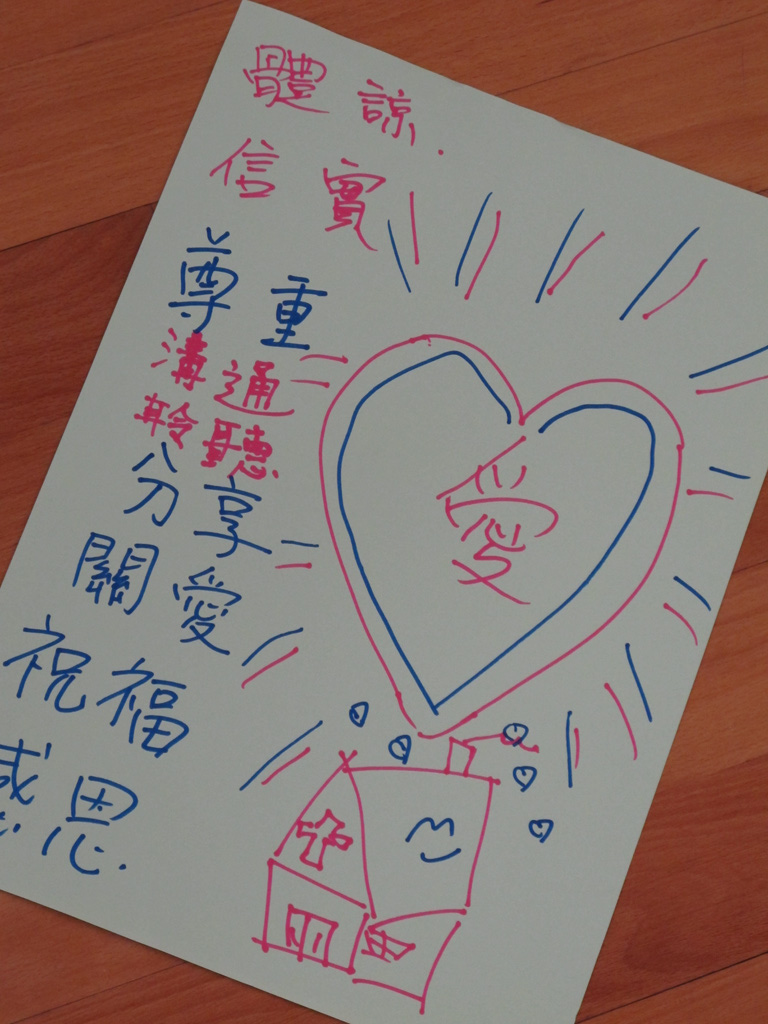 體諒.
信實
尊重
溝通
聆聽.
分享
關愛
祝福
感恩.
愛